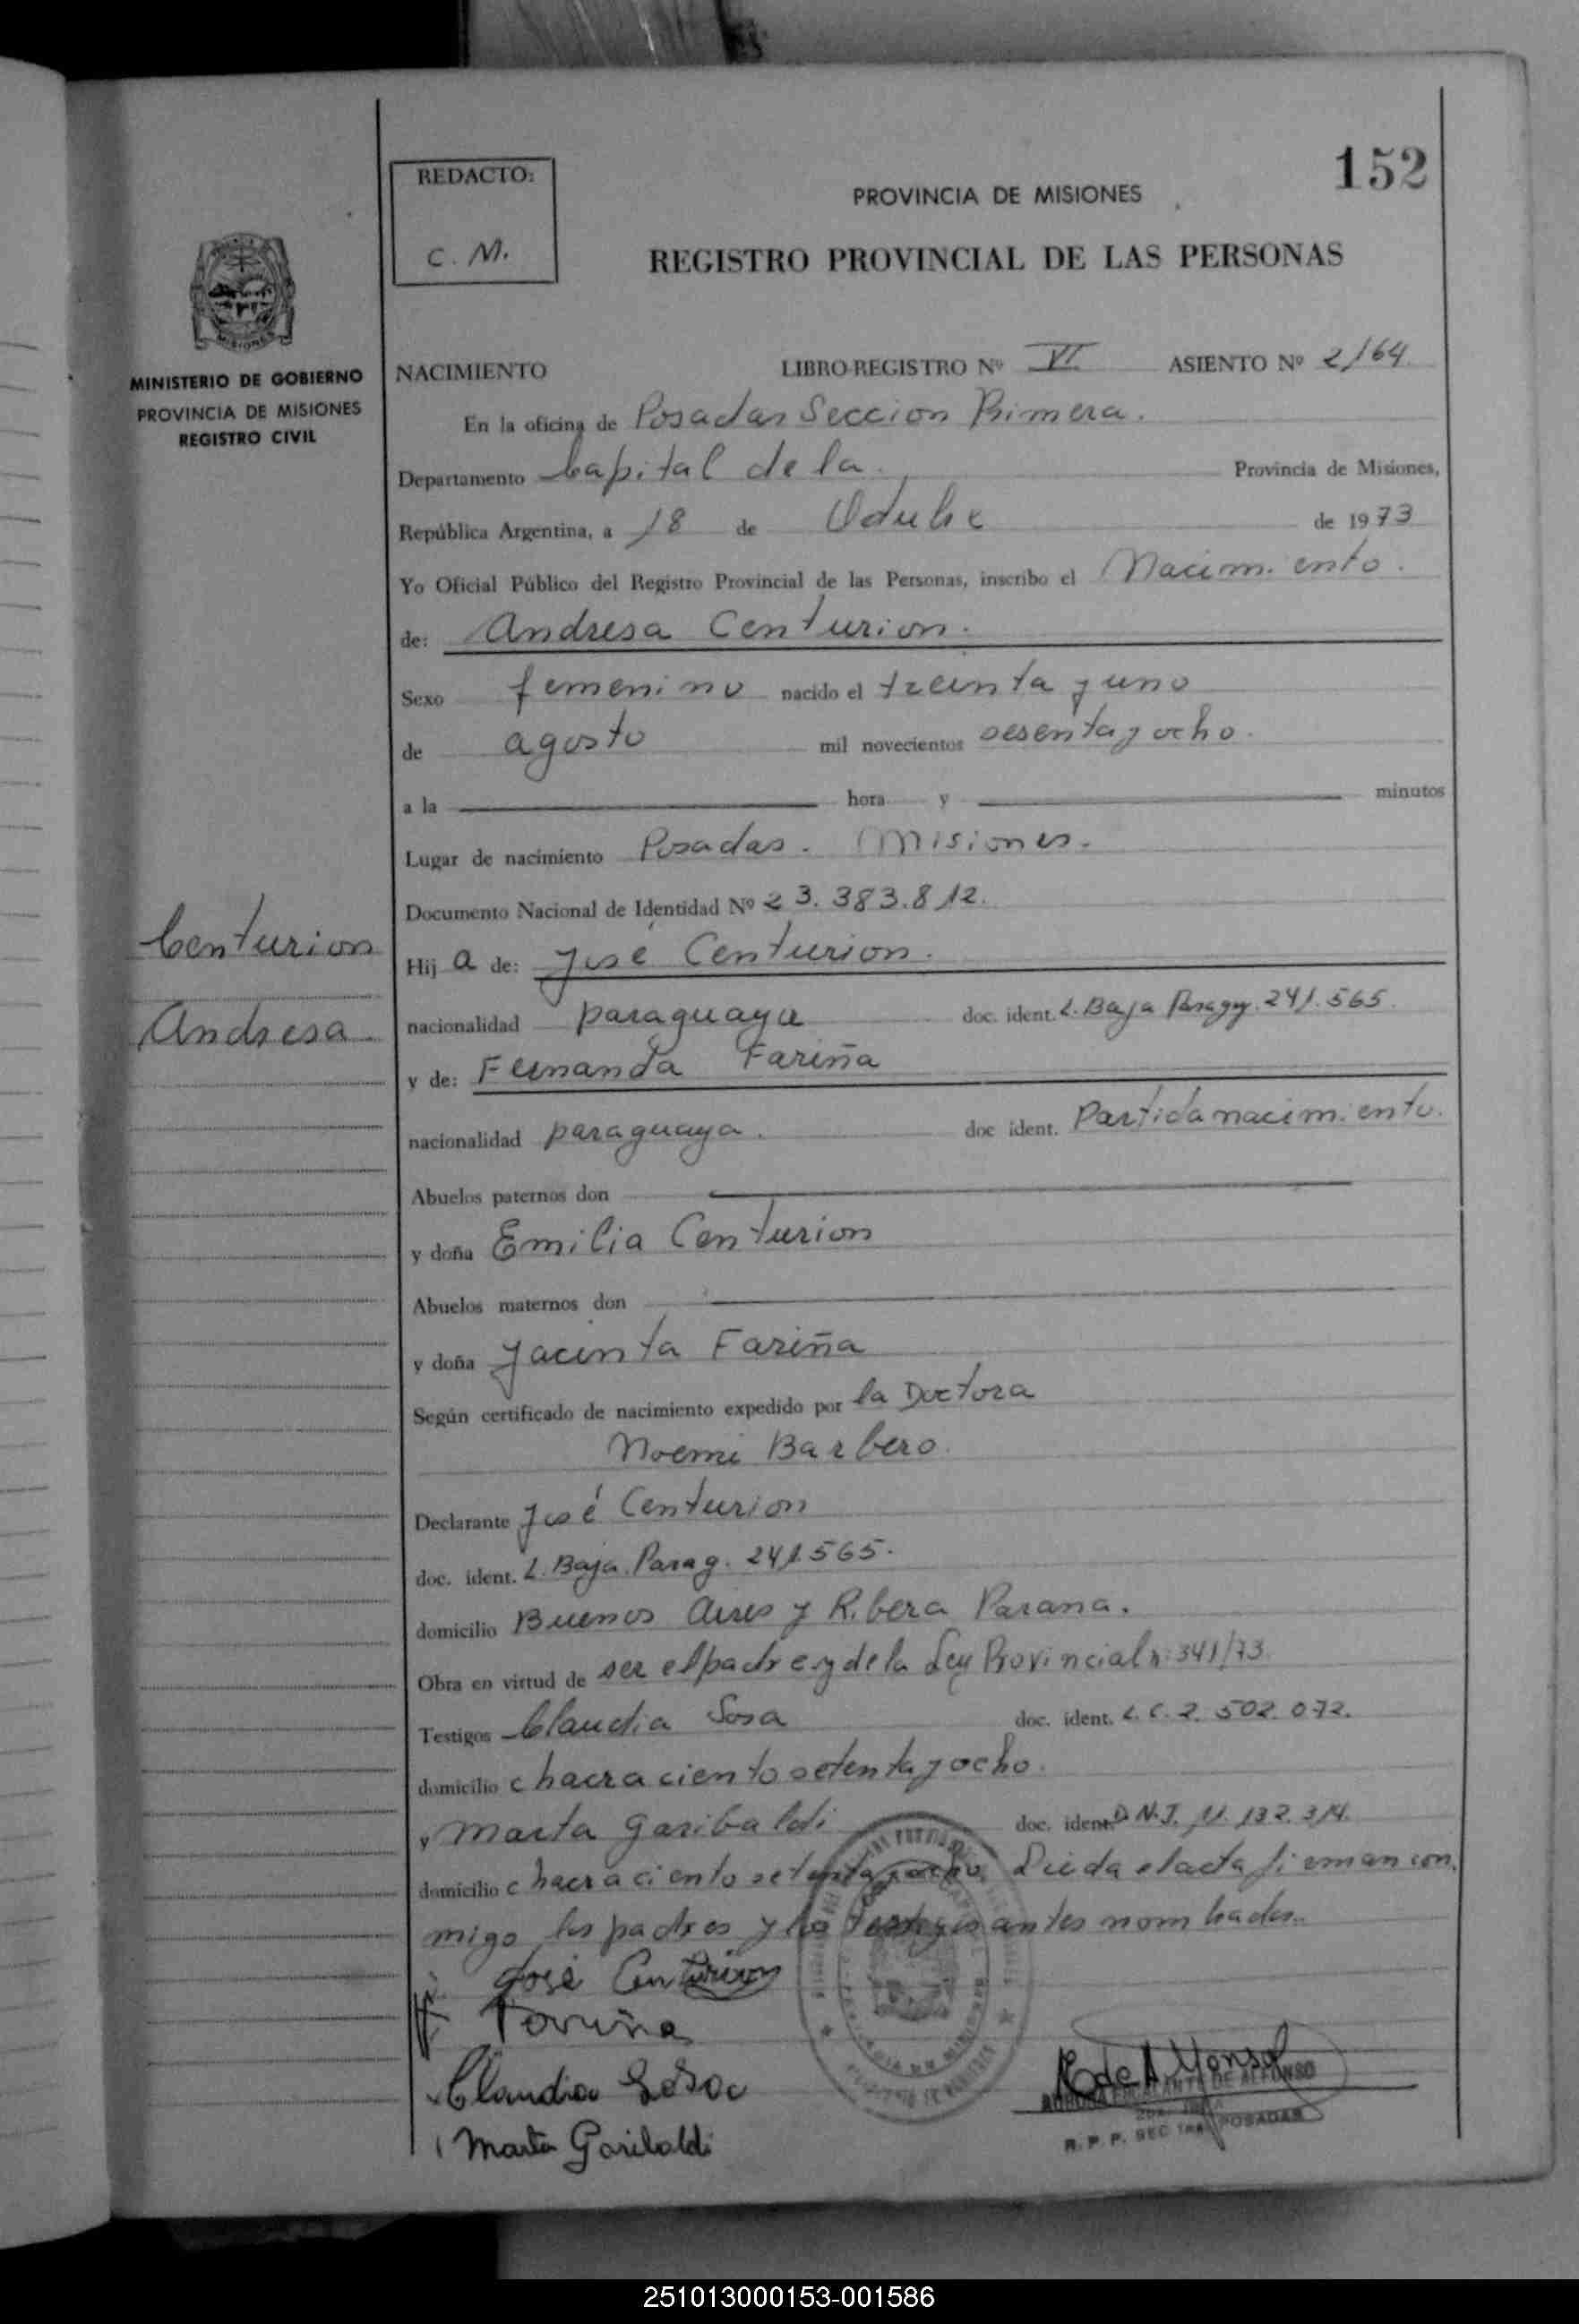 152
REDACTO:
C. M.
PROVINCIA DE MISIONES
REGISTRO PROVINCIAL DE LAS PERSONAS
MISIONES
MINISTERIO DE GOBIERNO
PROVINCIA DE MISIONES
REGISTRO CIVIL
NACIMIENTO LIBRO-REGISTRO Nº VI ASIENTO Nº 2164
En la oficina de Posadas Seccion Primera.
Departamento Capital de la. Provincia de Misiones,
República Argentina, a 18 de Octubre de 1973
Yo Oficial Público del Registro Provincial de las Personas, inscribo el Nacimiento.
de: Andresa Centurion.
Sexo femenino nacido el treinta y uno
de agosto mil novecientos sesenta y ocho.
a la hora y minutos
Lugar de nacimiento Posadas. Misiones.
Documento Nacional de Identidad Nº 23.383.812.
Centurion
Andresa
Hij a de: José Centurion.
nacionalidad paraguaya doc. ident. L. Baja Paragy. 241.565.
y de: Fernanda Fariña
nacionalidad paraguaya. doc ident. Partida nacimiento.
Abuelos paternos don
y doña Emilia Centurion
Abuelos maternos don
y doña Jacinta Fariña
Según certificado de nacimiento expedido por la Doctora
Noemi Barbero.
Declarante José Centurion
doc. ident. L. Baja. Parag. 241.565.
domicilio Buenos Aires y Ribera Parana.
Obra en virtud de ser el padre y de la Ley Provincial n: 341/73.
Testigos Claudia Sosa doc. ident. L. C. 2. 502. 072.
domicilio chacra ciento setenta y ocho.
y Marta Garibaldi doc. ident. D.N.I. 11. 132. 314.
domicilio chacra ciento setenta y ocho. Leida el acta firman con.
migo los padres y los testigos antes nombrados.
José Centurion
F. Fariña
Claudia Sosa
Marta Garibaldi
R de Alfonso
AURORA ESCALANTE DE ALFONSO
R. P. P. SEC 1ra. POSADAS
251013000153-001586